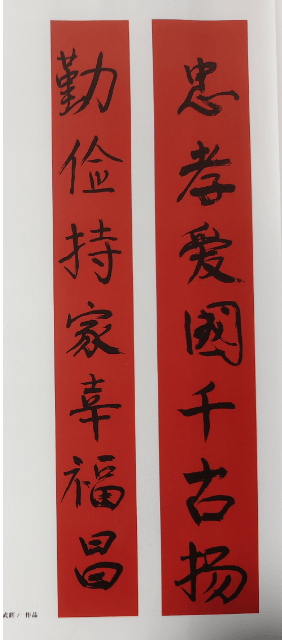 忠孝爱國千古扬
勤俭持家幸福昌
作品